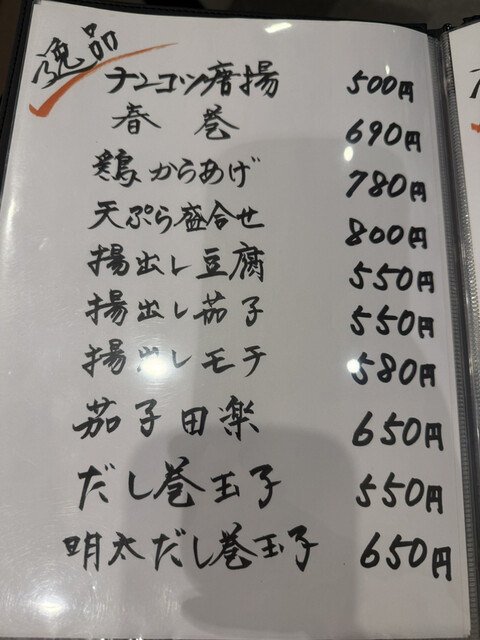 逸品
ナンコツ唐揚 500円
春巻 690円
鶏からあげ 780円
天ぷら盛合せ 800円
揚出し豆腐 550円
揚出し茄子 550円
揚出しモチ 580円
茄子田楽 650円
だし巻玉子 550円
明太だし巻玉子 650円